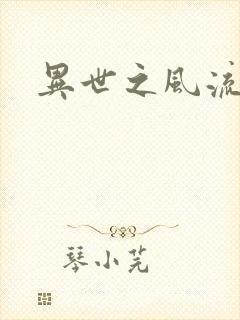 異世之風流
琴小芫